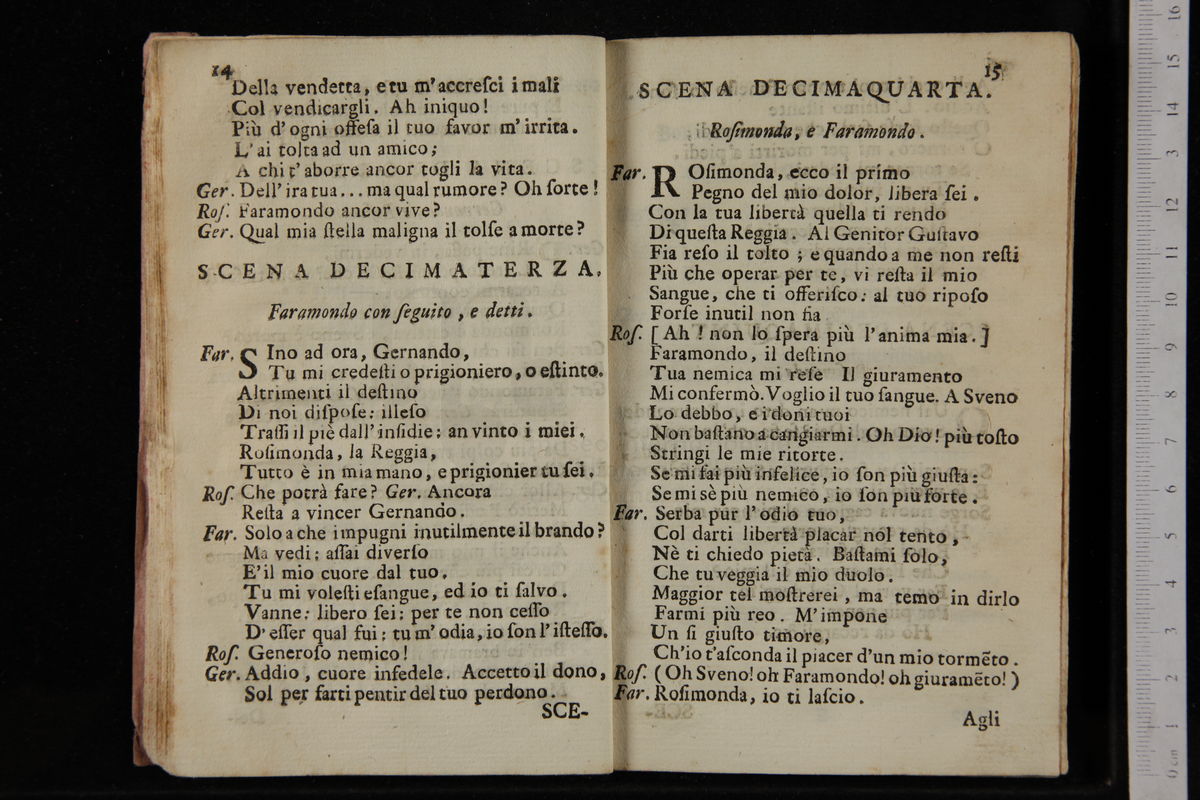 14
Della vendetta, e tu m'accreſci i mali
Col vendicargli. Ah iniquo!
Più d'ogni offeſa il tuo favor m'irrita.
L'ai tolta ad un amico;
A chi t'aborre ancor togli la vita.
Ger. Dell'ira tua... ma qual rumore? Oh ſorte!
Roſ. Faramondo ancor vive?
Ger. Qual mia ſtella maligna il tolſe a morte?
SCENA DECIMATERZA.
Faramondo con ſeguito, e detti.
Far. SIno ad ora, Gernando,
Tu mi credeſti o prigioniero, o eſtinto.
Altrimenti il deſtino
Di noi diſpoſe: illeſo
Traſſi il piè dall'inſidie: an vinto i miei.
Roſimonda, la Reggia,
Tutto è in mia mano, e prigionier tu ſei.
Roſ. Che potrà fare? Ger. Ancora
Reſta a vincer Gernando.
Far. Solo a che impugni inutilmente il brando?
Ma vedi: aſſai diverſo
E' il mio cuore dal tuo.
Tu mi voleſti eſangue, ed io ti ſalvo.
Vanne: libero ſei: per te non ceſſo
D'eſſer qual fui: tu m'odia, io ſon l'iſteſſo.
Roſ. Generoſo nemico!
Ger. Addio, cuore infedele. Accetto il dono,
Sol per farti pentir del tuo perdono.
SCE-
15
SCENA DECIMAQUARTA.
Roſimonda, e Faramondo.
Far. ROſimonda, ecco il primo
Pegno del mio dolor, libera ſei.
Con la tua libertà quella ti rendo
Di queſta Reggia. Al Genitor Guſtavo
Fia reſo il tolto; e quando a me non reſti
Più che operar per te, vi reſta il mio
Sangue, che ti offeriſco: al tuo ripoſo
Forſe inutil non fia
Roſ. [Ah! non lo ſpera più l'anima mia.]
Faramondo, il deſtino
Tua nemica mi reſe Il giuramento
Mi confermò. Voglio il tuo ſangue. A Sveno
Lo debbo, e i doni tuoi
Non baſtano a cangiarmi. Oh Dio! più toſto
Stringi le mie ritorte.
Se mi fai più infelice, io ſon più giuſta:
Se mi sè più nemico, io ſon più forte.
Far. Serba pur l'odio tuo,
Col darti libertà placar nol tento,
Nè ti chiedo pietà. Baſtami ſolo,
Che tu veggia il mio duolo.
Maggior tel moſtrerei, ma temo in dirlo
Farmi più reo. M'impone
Un ſi giuſto timore,
Ch'io t'aſconda il piacer d'un mio tormẽto.
Roſ. (Oh Sveno! oh Faramondo! oh giuramẽto!)
Far. Roſimonda, io ti laſcio.
Agli
0 cm 1 2 3 4 5 6 7 8 9 10 11 12 3 14 15 16